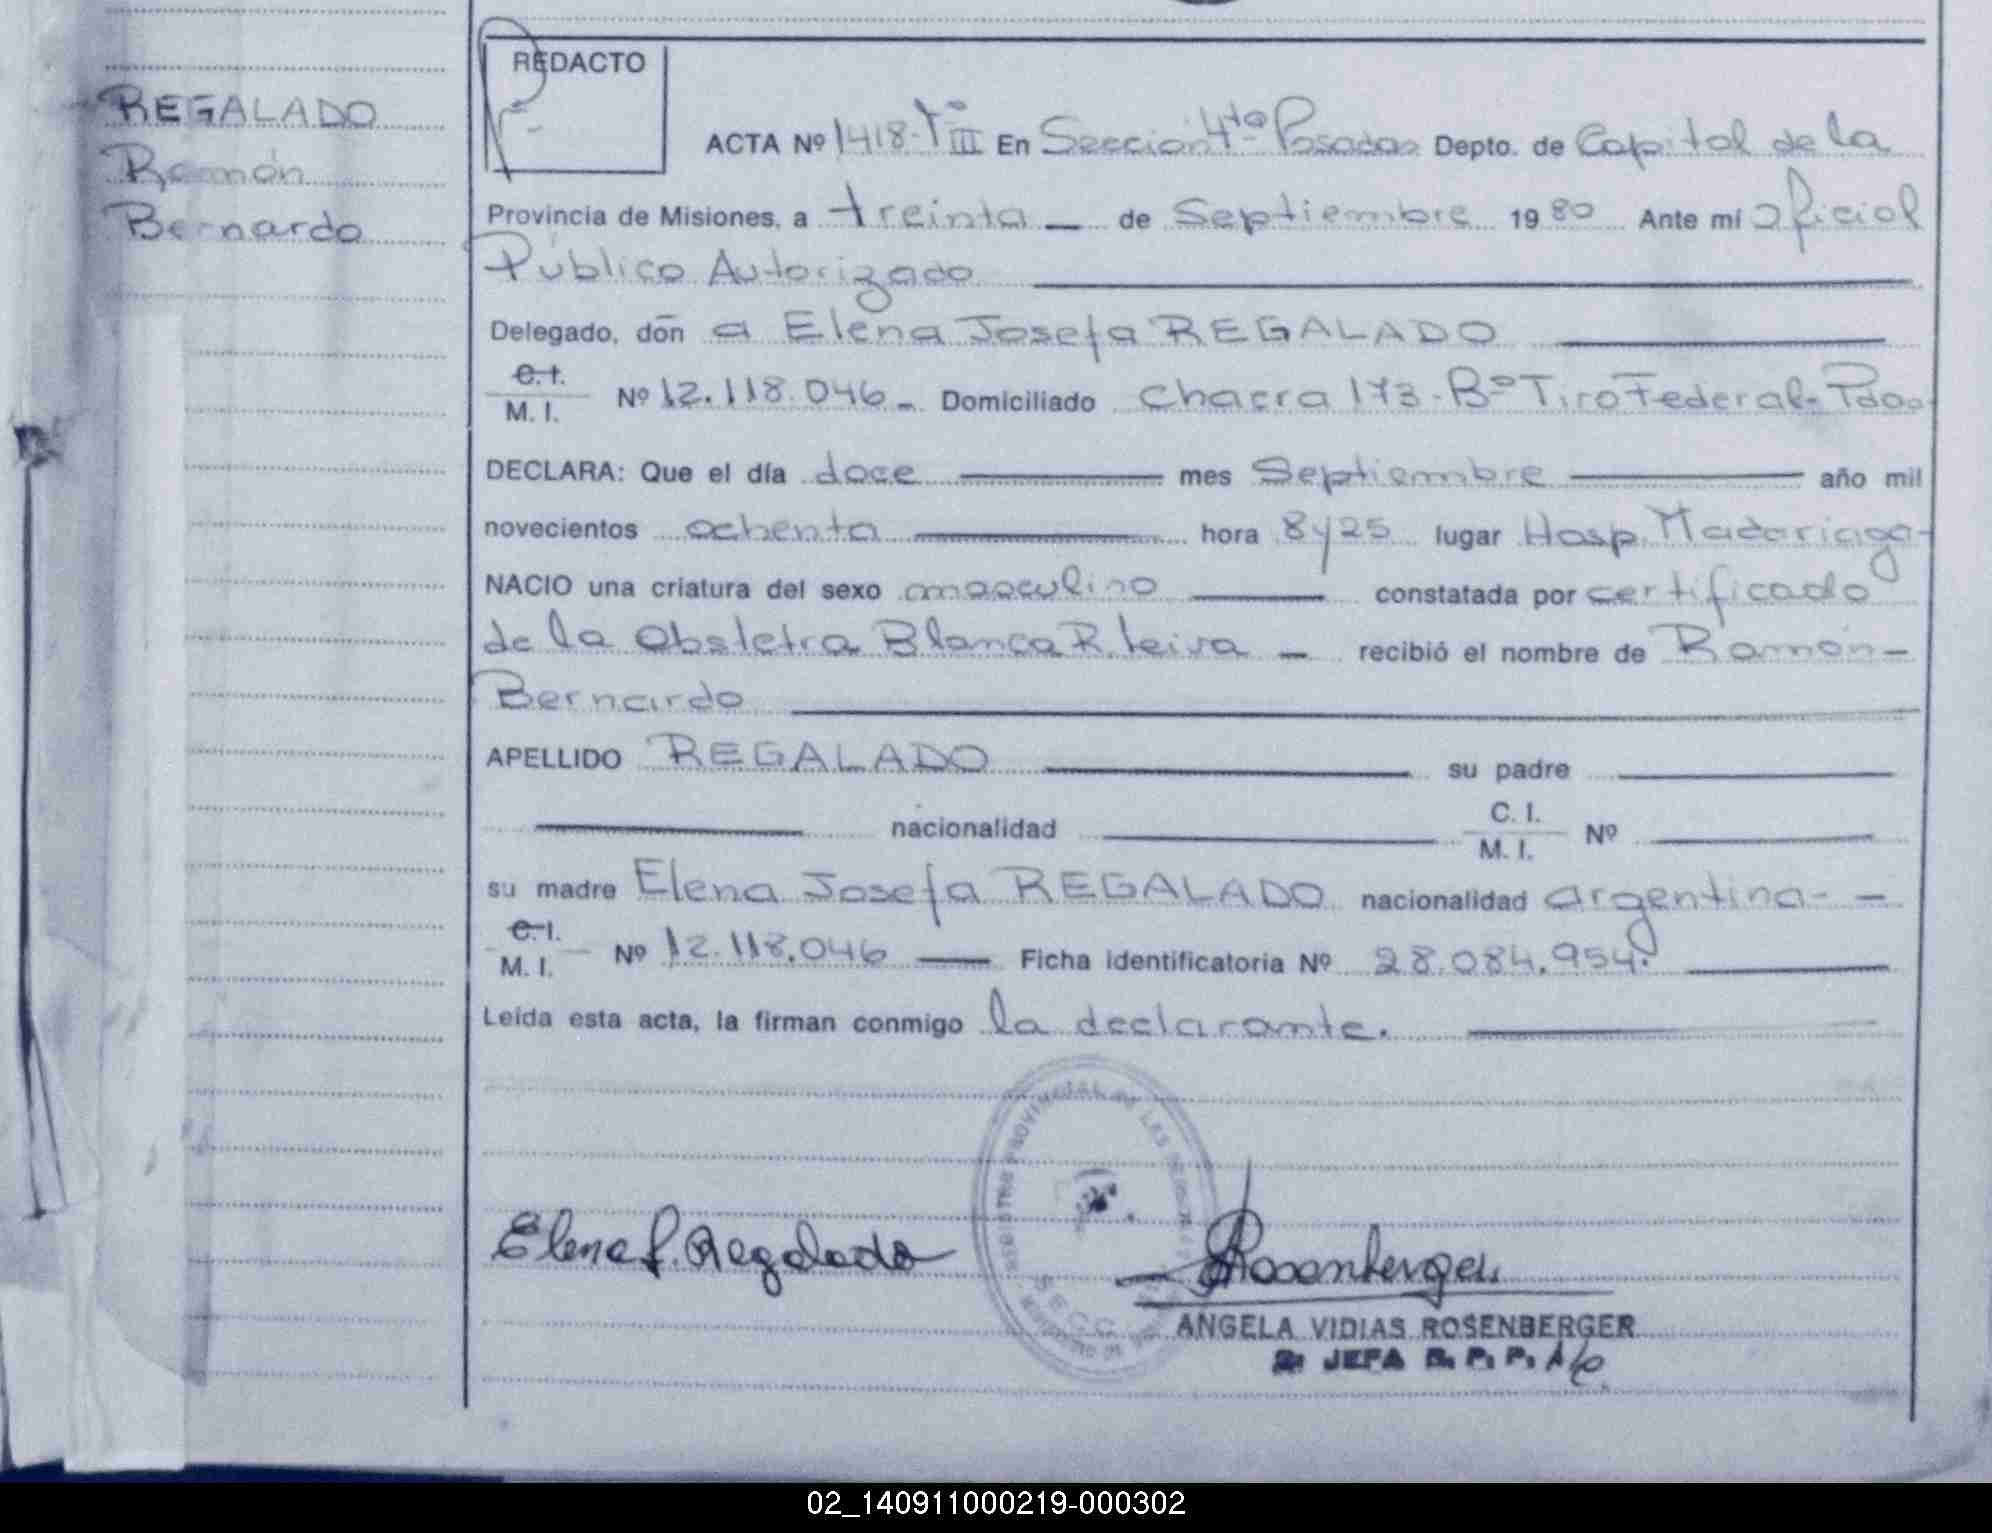 REGALADO
Ramón
Bernardo
REDACTO
ACTA Nº 1418-Tº III En Sección 4ta Posadas Depto. de Capital de la
Provincia de Misiones, a treinta — de Septiembre 1980 Ante mi Oficial
Público Autorizado
Delegado, don a Elena Josefa REGALADO
C.I.
M. I. Nº 12.118.046 - Domiciliado Chacra 173-Bº Tiro Federal-Pdas.
DECLARA: Que el día doce mes Septiembre año mil
novecientos ochenta hora 8y25 lugar Hosp. Madariaga-
NACIO una criatura del sexo masculino constatada por certificado
de la Obstetra Blanca R. Leiva — recibió el nombre de Ramón -
Bernardo
APELLIDO REGALADO su padre
nacionalidad C. I.
M. I. Nº
su madre Elena Josefa REGALADO nacionalidad argentina- -
C.I.
M. I. Nº 12.118.046 — Ficha identificatoria Nº 28.084.954.
Leída esta acta, la firman conmigo la declarante.
REGISTRO PROVINCIAL DE LAS
SECC
Elena J. Regalado
Rosenberger
ANGELA VIDIAS ROSENBERGER
2ª JEFA R. P. P. A/c.
02_140911000219-000302